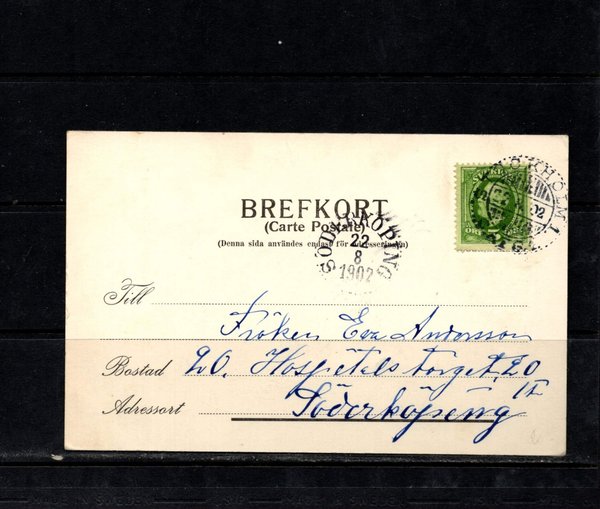 BREFKORT
(Carte Postale)
(Denna sida användes endast för adresseringen)
SÖDERKÖPING
22
8
1902
STOCKHOLM 1
SVERIGE
Till Fröken Eva Andersson
Bostad 20. Hospitals torget. 20
Adressort Söderköping